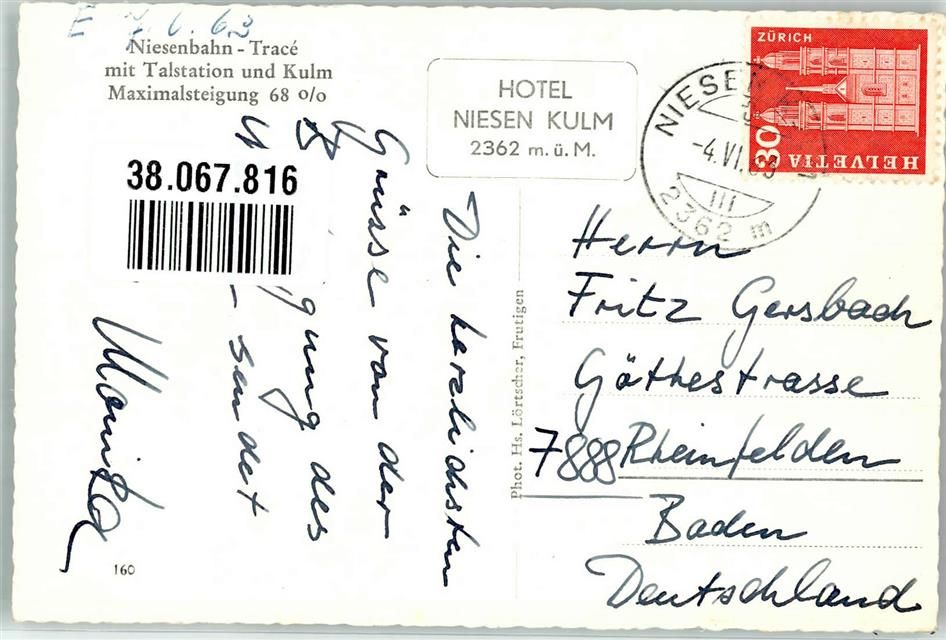 E 7.6.63
Niesenbahn - Tracé
mit Talstation und Kulm
Maximalsteigung 68 o/o
HOTEL
NIESEN KULM
2362 m. ü. M.
NIESEN
-4.VI.63
2362 m
ZÜRICH
30
HELVETIA
38.067.816
Die herzlichsten
Grüsse von der
des
sendet
Monika
160
Phot. Hs. Lörtscher, Frutigen
Herrn
Fritz Gersbach
Göthestrasse
7888 Rheinfelden
Baden
Deutschland